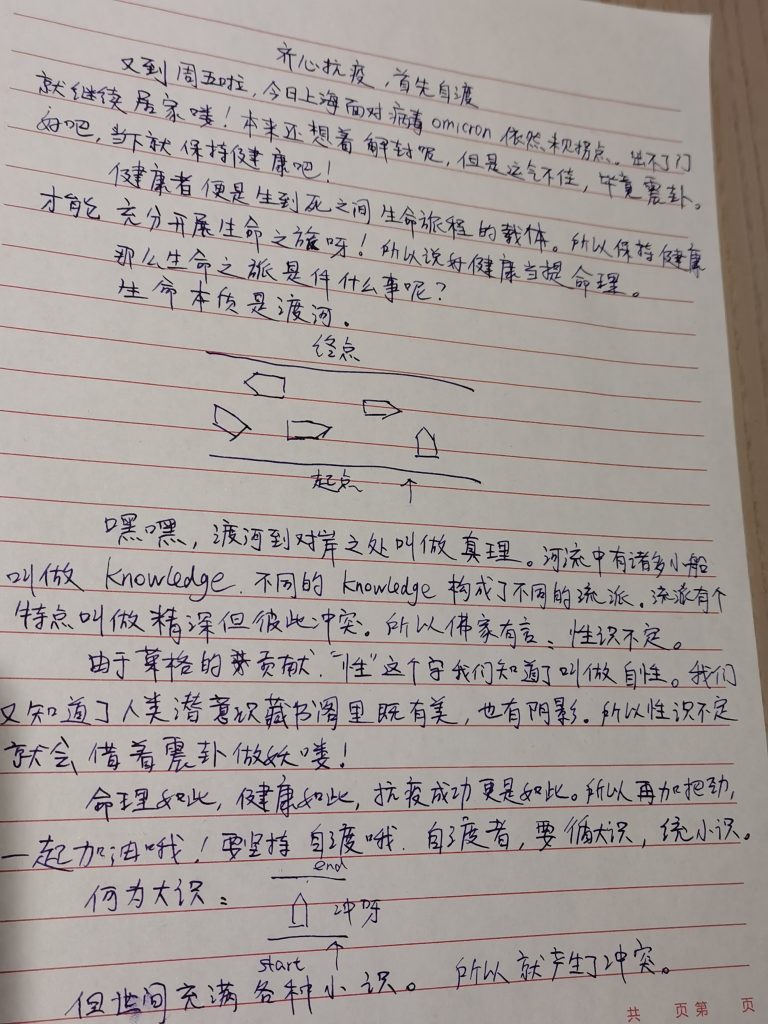 齐心抗疫，首先自渡
又到周五啦，今日上海面对病毒omicron依然未现拐点。出不了门
就继续居家喽！本来还想着解封呢，但是运气不佳，毕竟震卦。
好吧，当下就保持健康吧！
健康者便是生到死之间生命旅程的载体。所以保持健康
才能充分开展生命之旅呀！所以说好健康当提命理。
那么生命之旅是件什么事呢？
生命本质是渡河。
终点
起点
嘿嘿，渡河到对岸之处叫做真理。河流中有诸多小船
叫做 knowledge. 不同的 knowledge 构成了不同的流派。流派有个
特点叫做精深但彼此冲突。所以佛家有言：性识不定。
由于荣格的贡献.“性”这个字我们知道了叫做自性。我们
又知道了人类潜意识藏书阁里既有美，也有阴影。所以性识不定
就会借着震卦做妖喽！
命理如此，健康如此，抗疫成功更是如此。所以再加把劲，
一起加油哦！要坚持自渡哦．自渡者，要循大识，统小识。
end
何为大识：
冲呀
start
但世间充满各种小识。所以就产生了冲突。
共 页第 页